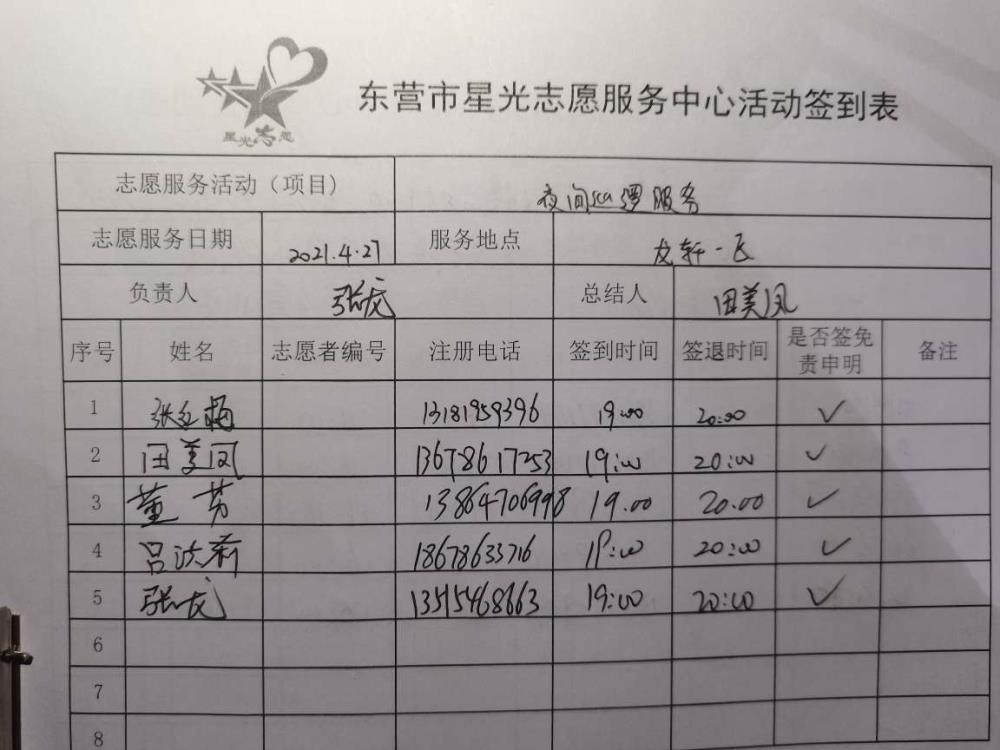 星光志愿
东营市星光志愿服务中心活动签到表
志愿服务活动（项目） 夜间巡逻服务
志愿服务日期 2021.4.27 服务地点
负责人 张龙 总结人 田美凤
序号 姓名 志愿者编号 注册电话 签到时间 签退时间 是否签免责申明 备注
1 张红梅 13181959396 19:00 20:00 ✓
2 田美凤 13678617253 19:00 20:00 ✓
3 董芳 13864706998 19.00 20.00 ✓
4 吕洪莉 18678633716 19:00 20:00 ✓
5 张龙 13515468663 19:00 20:00 ✓
6
7
8